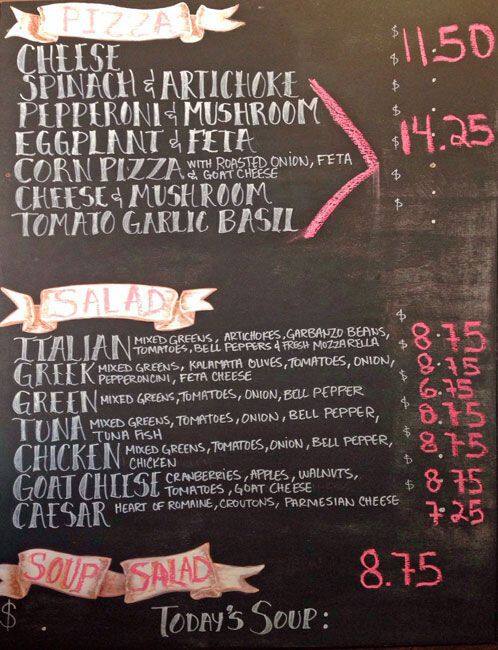 PIZZA
CHEESE $11.50
SPINACH & ARTICHOKE
PEPPERONI & MUSHROOM
EGGPLANT & FETA $14.25
CORN PIZZA WITH ROASTED ONION, FETA
& GOAT CHEESE
CHEESE & MUSHROOM
TOMATO GARLIC BASIL
SALAD
ITALIAN MIXED GREENS, ARTICHOKES, GARBANZO BEANS,
TOMATOES, BELL PEPPERS & FRESH MOZZARELLA $8.75
GREEK MIXED GREENS, KALAMATA OLIVES, TOMATOES, ONION,
PEPPERONCINI, FETA CHEESE $8.75
GREEN MIXED GREENS, TOMATOES, ONION, BELL PEPPER $6.75
TUNA MIXED GREENS, TOMATOES, ONION, BELL PEPPER,
TUNA FISH $8.75
CHICKEN MIXED GREENS, TOMATOES, ONION, BELL PEPPER,
CHICKEN $8.75
GOAT CHEESE CRANBERRIES, APPLES, WALNUTS,
TOMATOES, GOAT CHEESE $8.75
CAESAR HEART OF ROMAINE, CROUTONS, PARMESIAN CHEESE 7.25
SOUP SALAD 8.75
$ TODAY'S SOUP: